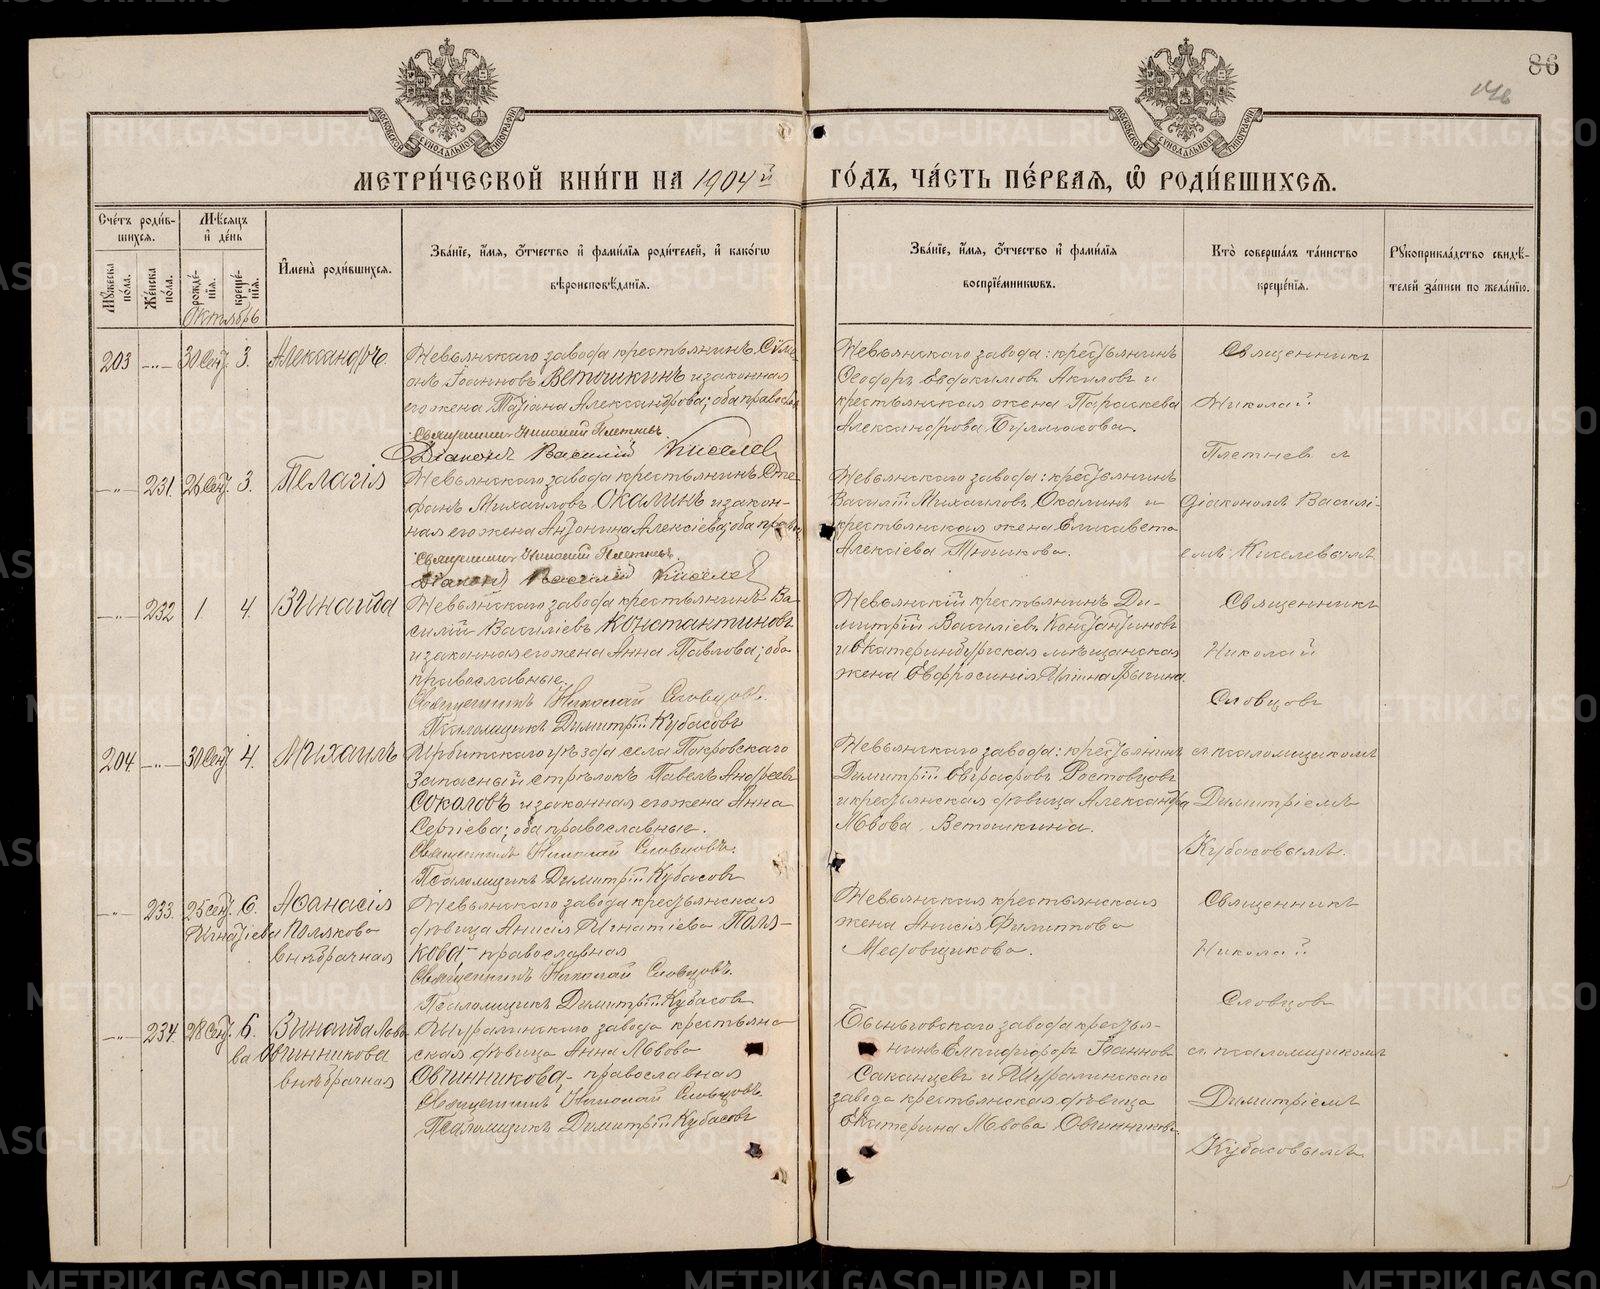 86
МОСКОВСКОЙ СѴНОДАЛЬНОЙ ТИПОГРАФІИ
МОСКОВСКОЙ СѴНОДАЛЬНОЙ ТИПОГРАФІИ
МЕТРИ́ЧЕСКОЙ КНИ́ГИ НА 1904й ГО́ДЪ, ЧА́СТЬ ПЕ́РВАЯ, Ѡ РОДИ́ВШИХСЯ.
Сче́тъ роди́в-
шихся.
Мѣ́сяцъ
и де́нь
Му́жеска по́ла.
Же́нска по́ла.
рожде́-
нїя.
креще́-
нїя.
Октябрь
И̓мена̀ роди́вшихся.
Зва́нїе, и́мя, ѻ́тчество и фами́лїя роди́телей, и како́гѡ
вѣроисповѣ́данїя.
Зва́нїе, и́мя, ѻ́тчество и фами́лїя
воспрїе́мникѡвъ.
Кто̀ соверша́лъ та́инство
креще́нїя.
Рꙋкоприкла́дство свидѣ́-
телей за́писи по жела́нїю.
203 —„— 30 Сент. 3. Александръ.
Невьянскаго завода крестьянинъ Симе-
онъ Іоанновъ Ветошкинъ и законная
его жена Татіана Александрова; оба православ
Священникъ Николай Плетневъ.
Діаконъ Василій Киселев
Невьянскаго завода: крестьянинъ
Ѳеодоръ Евдокимовъ Акиловъ и
крестьянская жена Параскева
Александрова
Священникъ
Николай
Плетневъ съ
—„— 231. 26 Сент. 3. Пелагія
Невьянскаго завода крестьянинъ Сте-
фанъ Михаиловъ Окалинъ и закон-
ная его жена Антонина Алексіева; оба право
Священникъ Николай Плетневъ.
Діаконъ Василій Киселев
Невьянскаго завода: крестьянинъ
Василій Михаиловъ Окалинъ и
крестьянская жена Елисавета
Алексіева Тюникова.
діакономъ Василі-
емъ Киселевымъ
—„— 232 1 4. Зинаида
Невьянскаго завода крестьянинъ Ва-
силій Василіевъ Константиновъ
и законная его жена Анна Павлова; оба
православные.
Священникъ Николай Словцовъ.
Псаломщикъ Димитрій Кубасовъ
Невьянскій крестьянинъ Ди-
митрій Василіевъ Константиновъ
и Екатеринбургская мѣщанская
жена Евфросинія
Священникъ
Николай
Словцовъ
204 —„— 30 Сент 4. Михаилъ
Ирбитскаго уѣзда села Покровскаго
Запасный стрѣлокъ Павелъ Андреевъ
Соколовъ и законная его жена Анна
Сергіева; оба православные.
Священникъ Николай Словцовъ.
Псаломщикъ Димитрій Кубасовъ
Невьянскаго завода: крестьянинъ
Димитрій Евграфовъ Ростовцовъ
и крестьянская дѣвица Александра
Львова Ветошкина.
съ псаломщикомъ
Димитріемъ
Кубасовымъ.
—„— 233. 25 Сент. 6. Аѳанасія
Игнатіева Полякова
внѣбрачная
Невьянскаго завода крестьянская
дѣвица Анисія Игнатіева Поля-
кова, — православная
Священникъ Николай Словцовъ.
Псаломщикъ Димитрій Кубасовъ
Невьянская крестьянская
жена Анисія Филиппова
Медовщикова.
Священникъ
Николай
Словцовъ
—„— 234. 28 Сент. 6. Зинаида Льво-
ва Овчинникова
внѣбрачная
Шуралинскаго завода крестьян-
ская дѣвица Анна Львова
Овчинникова, — православная
Священникъ Николай Словцовъ.
Псаломщикъ Димитрій Кубасовъ
Быньговскаго завода крестья-
нинъ Елпидифоръ Іоанновъ
Саканцевъ и Шуралинскаго
завода крестьянская дѣвица
Екатерина Львова Овчинникова.
съ псаломщикомъ
Димитріемъ
Кубасовымъ.
METRIKI.GASO-URAL.RU